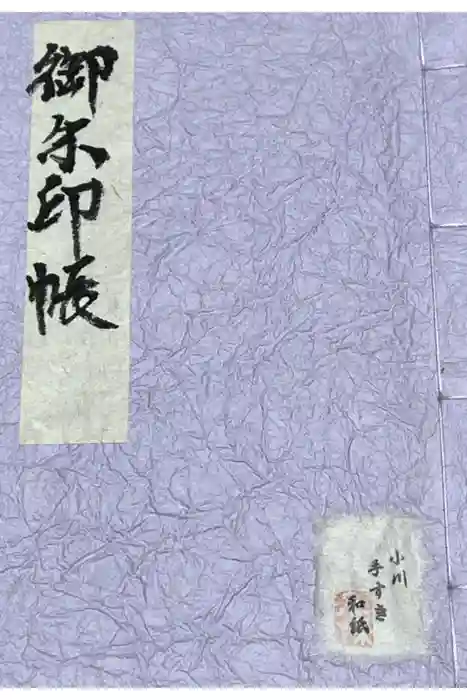 御朱印帳
小川
手すき
和紙